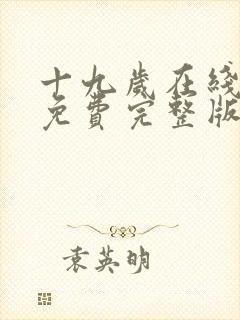 十九歲在綫
免費完整版
袁英明